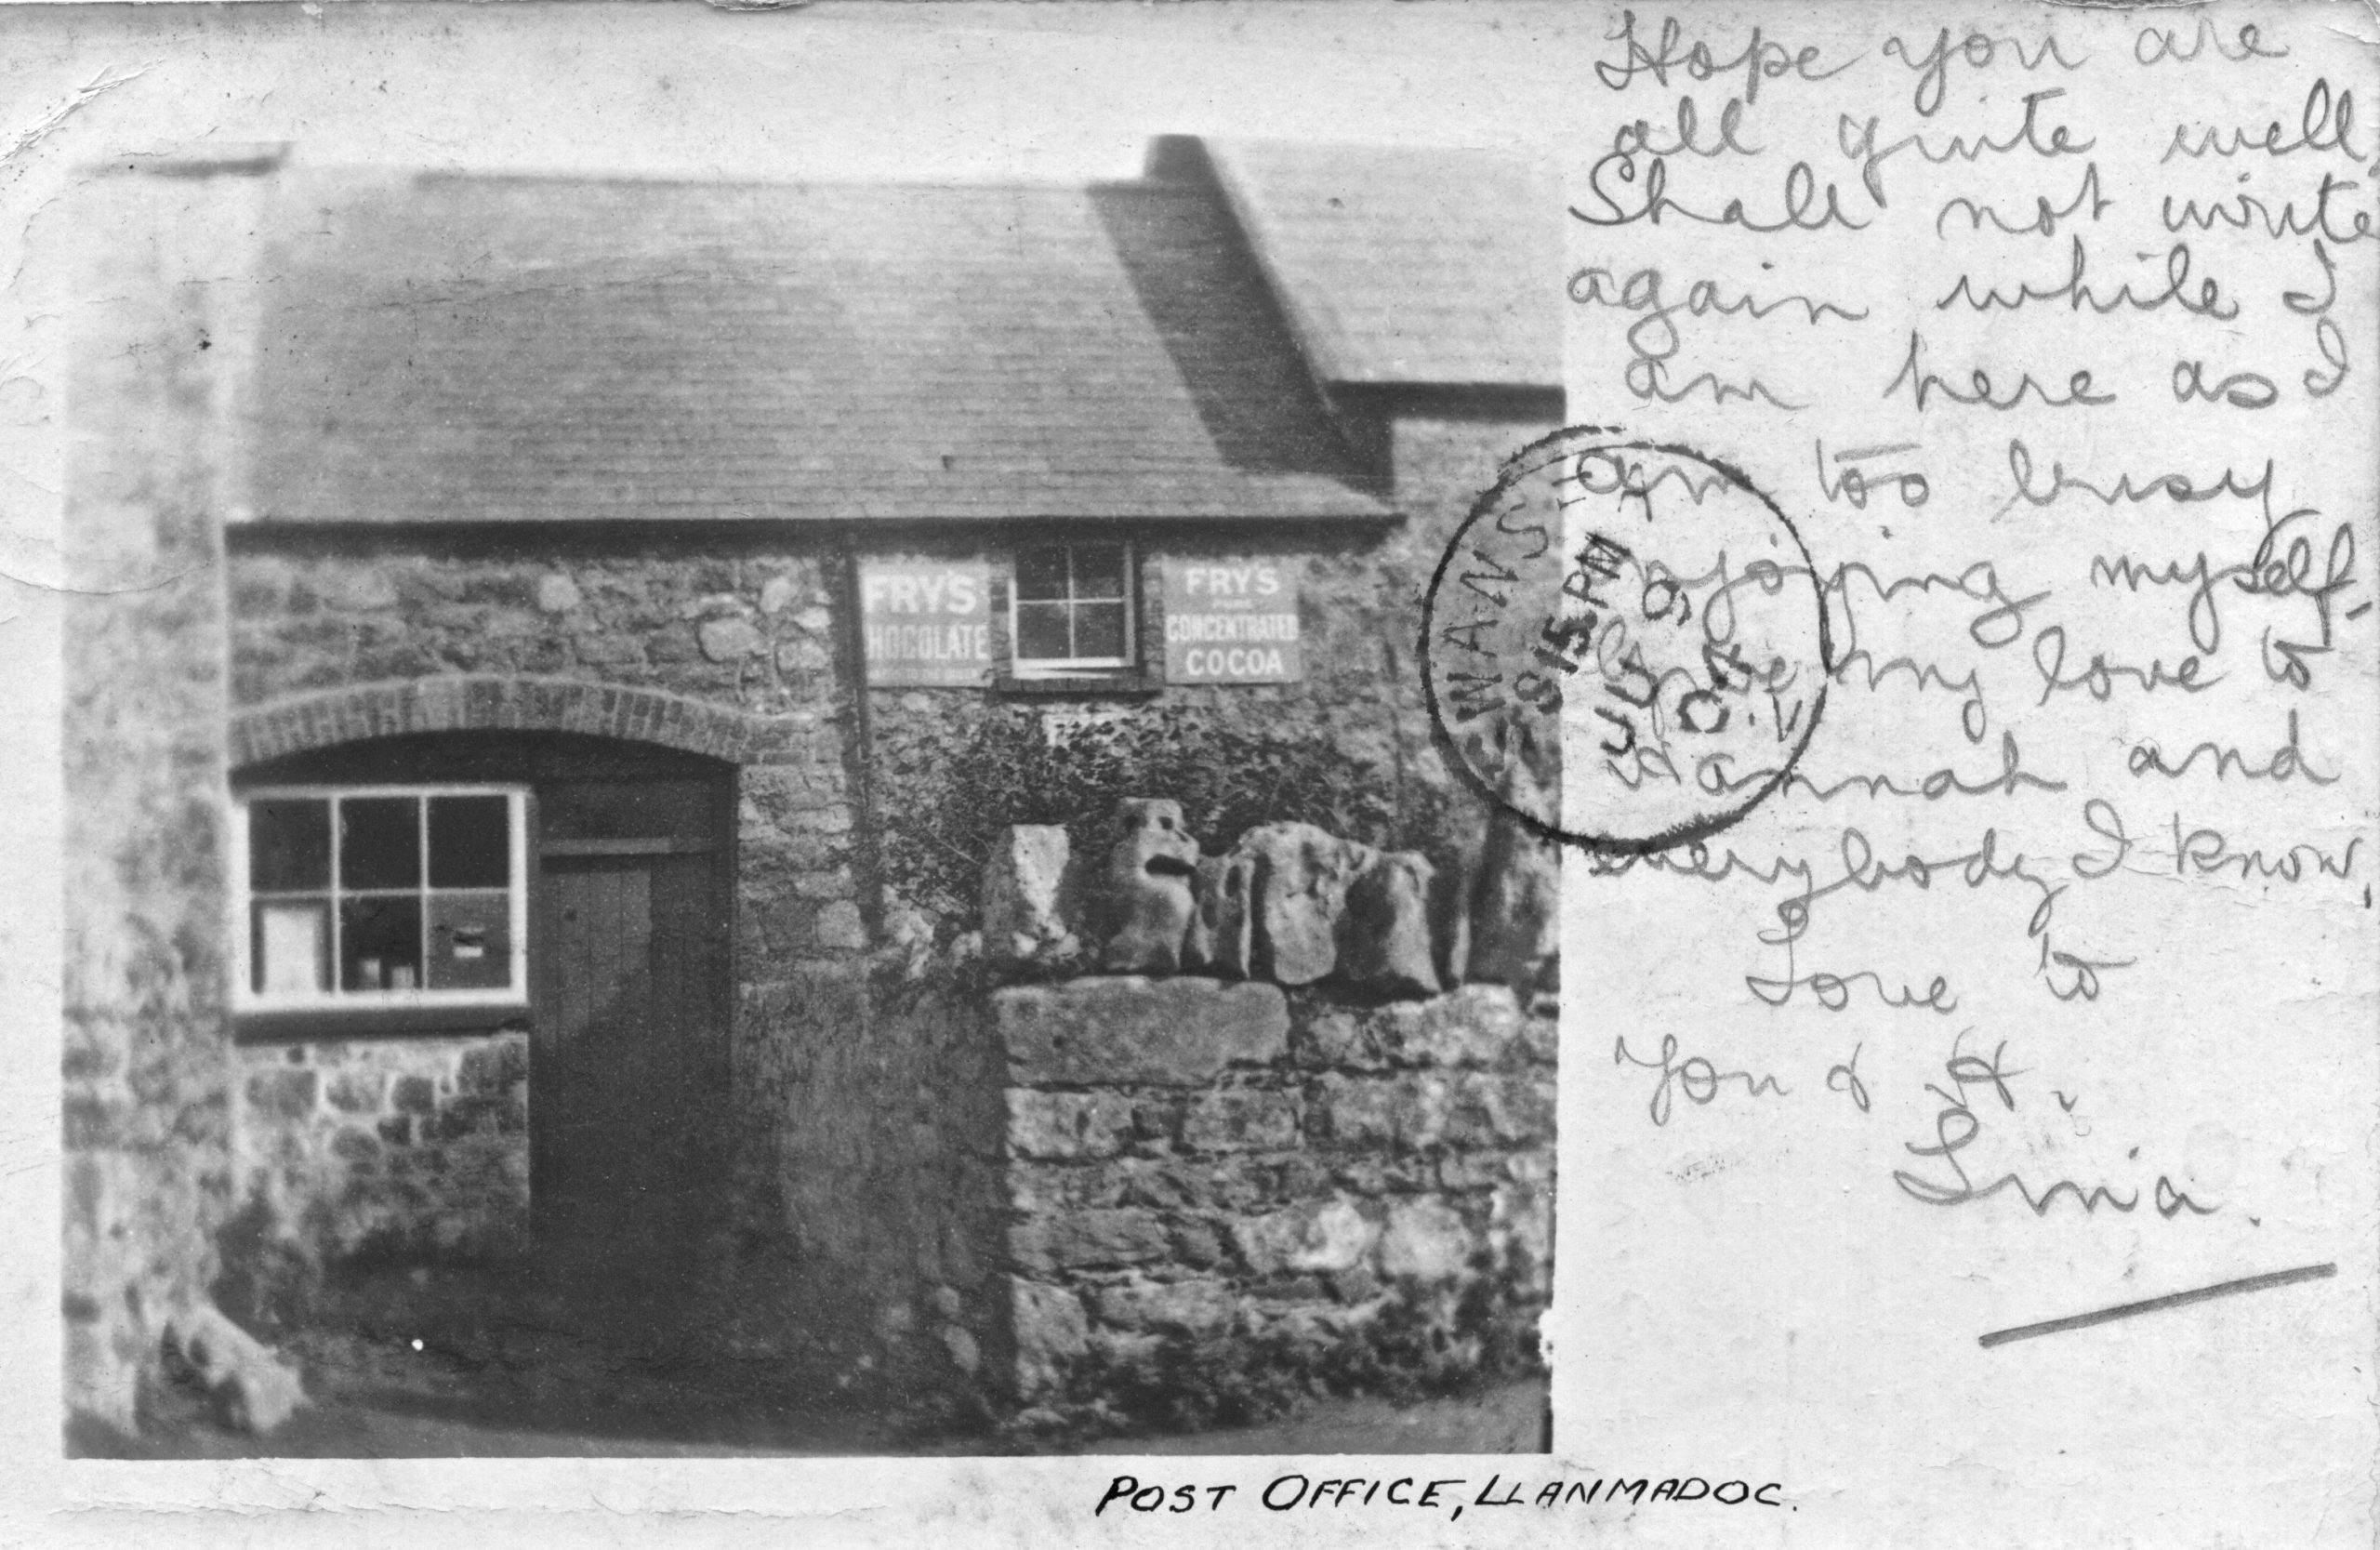 Hope you are
all quite well.
Shall not write
again while I
am here as I
am too busy
enjoying myself.
Give my love to
Hannah and
everybody I know,
Love to
You & H.
SWANSEA
8 15 PM
JU 9
04
FRY'S
HOCOLATE
FRY'S
PURE
CONCENTRATED
COCOA
POST OFFICE, LLANMADOC.